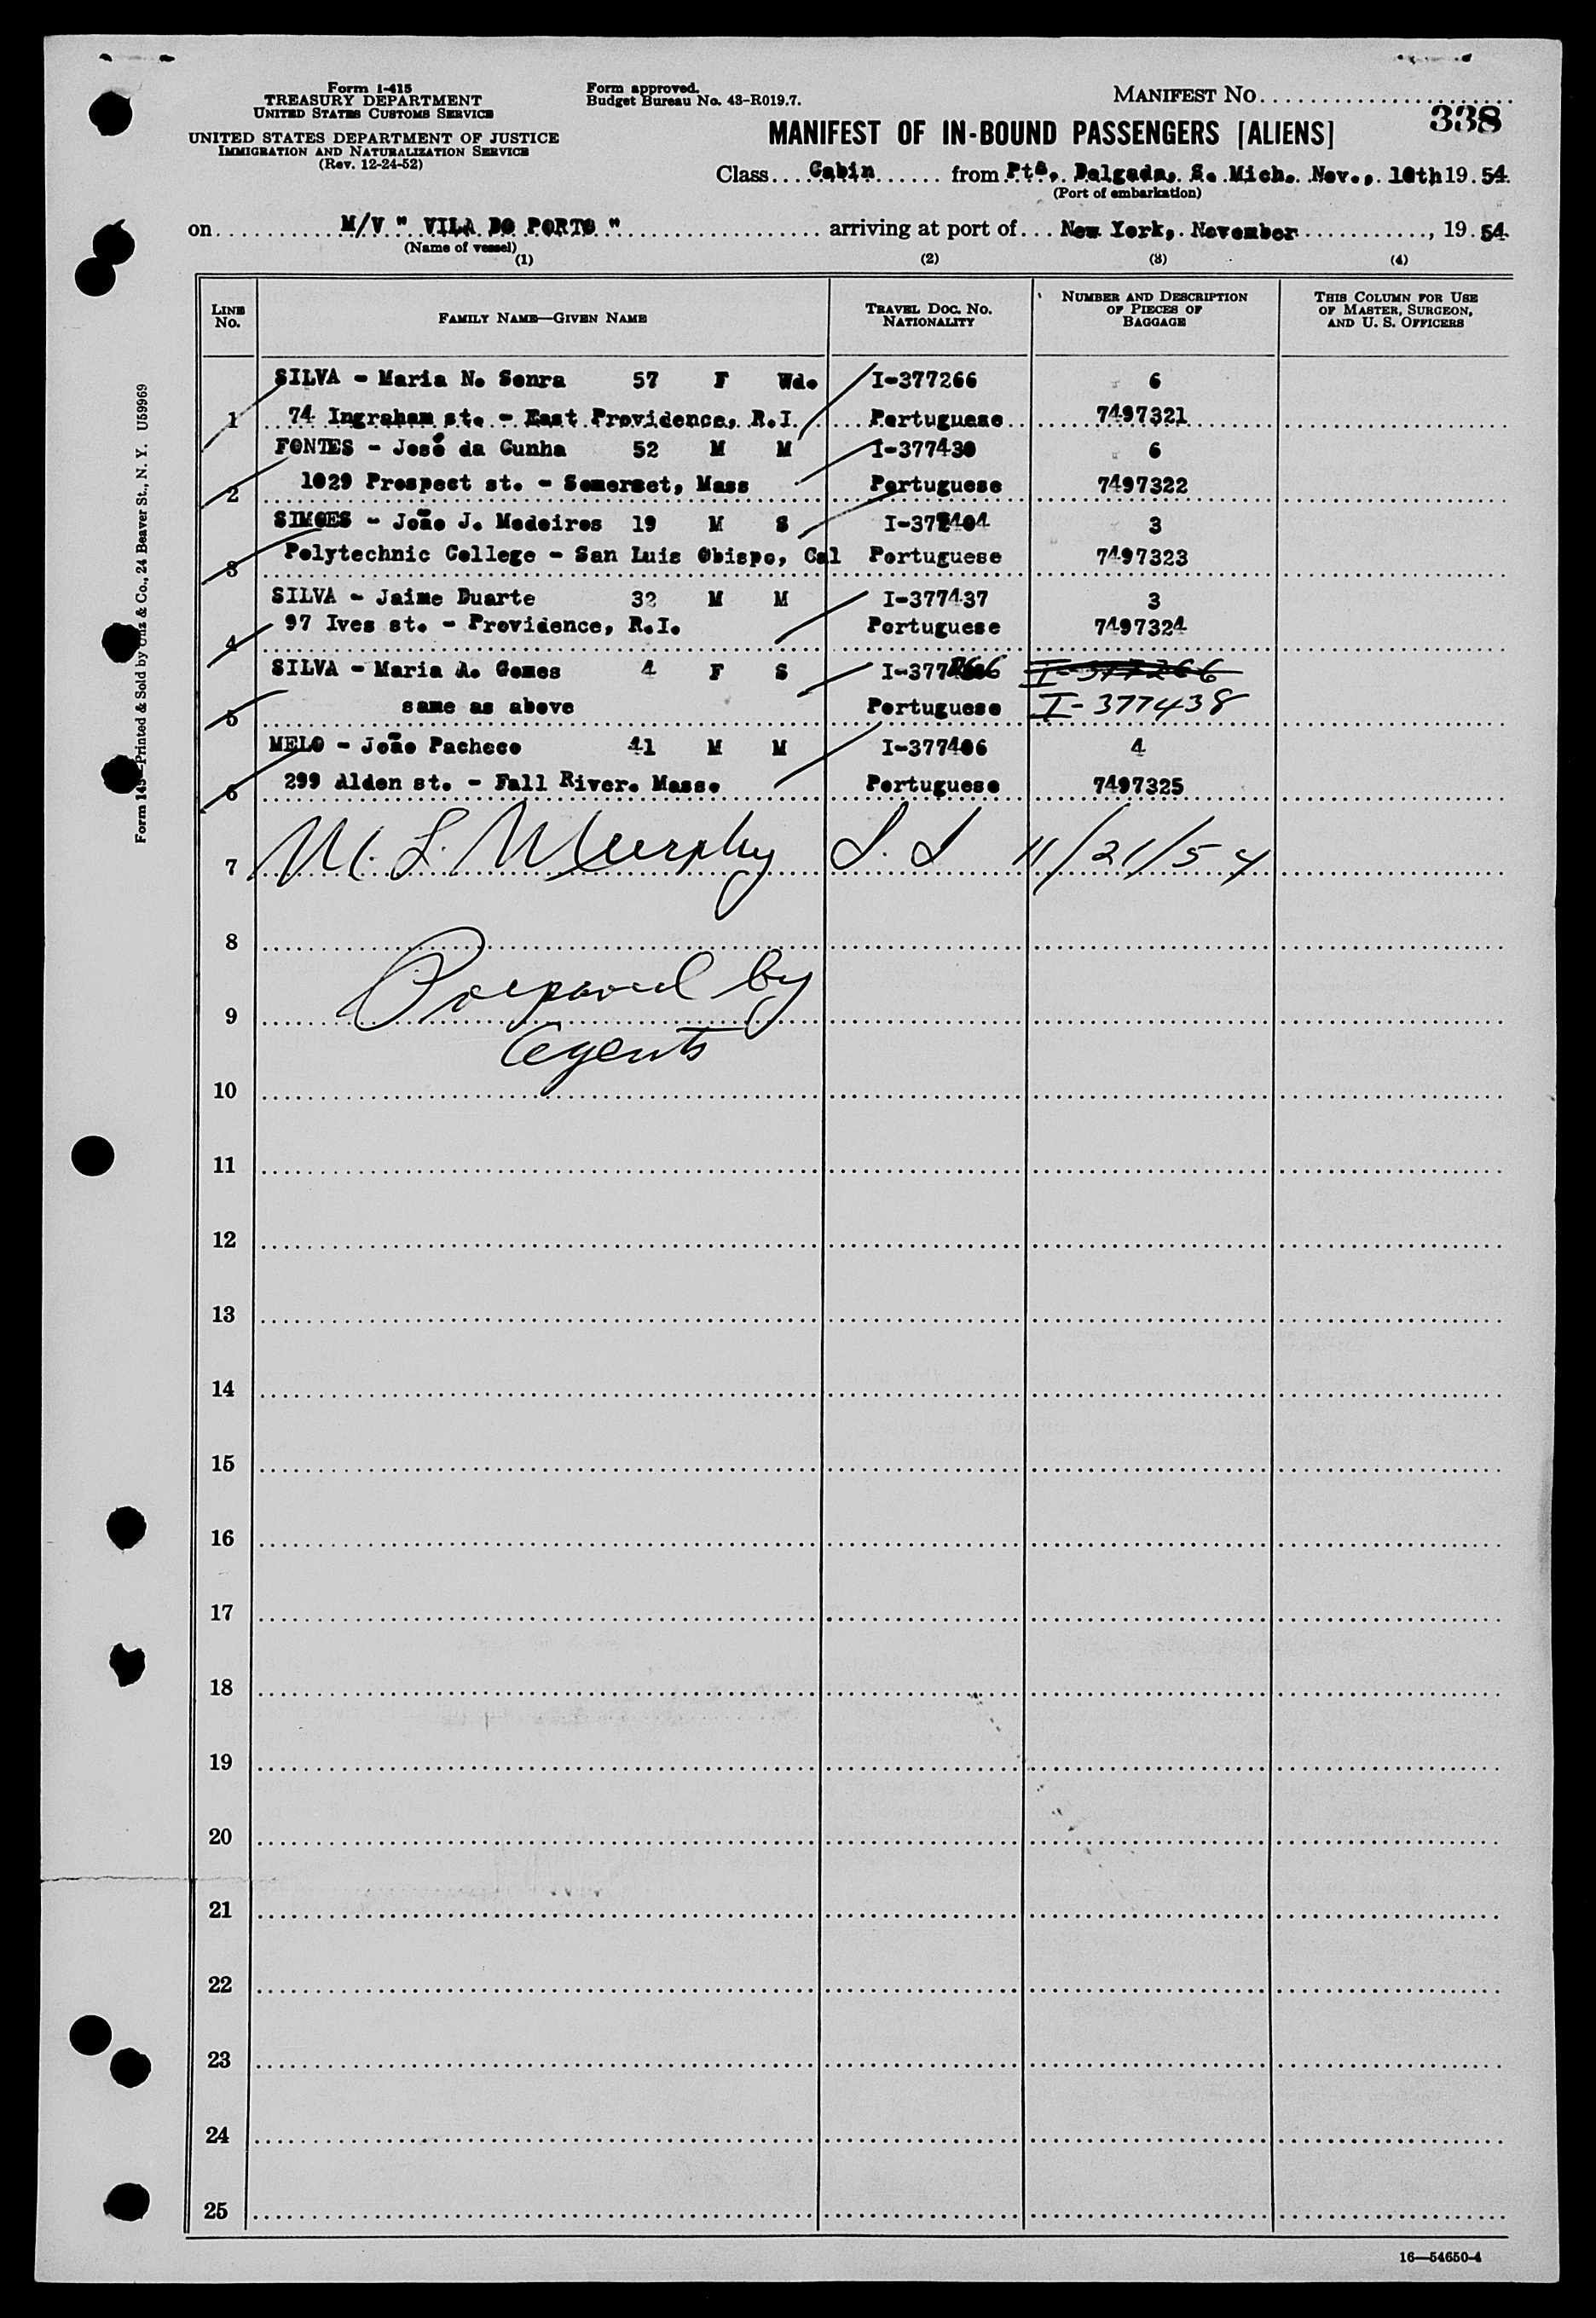 Form I-415
TREASURY DEPARTMENT
UNITED STATES CUSTOMS SERVICE
UNITED STATES DEPARTMENT OF JUSTICE
IMMIGRATION AND NATURALIZATION SERVICE
(Rev. 12-24-52)
Form approved.
Budget Bureau No. 43-R019.7.
MANIFEST NO.
338
MANIFEST OF IN-BOUND PASSENGERS [ALIENS]
Class Cabin from Ptª. Delgada, S. Mich. Nov., 10th 19 54
(Port of embarkation)
on M/V " VILA DO PORTO " arriving at port of New York, November, 19 54
(Name of vessel)
(1) (2) (3) (4)
LINE NO. FAMILY NAME—GIVEN NAME TRAVEL DOC. NO. NATIONALITY NUMBER AND DESCRIPTION OF PIECES OF BAGGAGE THIS COLUMN FOR USE OF MASTER, SURGEON, AND U. S. OFFICERS
SILVA - Maria N. Senra 57 F Wd. I-377266 6
1 74 Ingraham st. - East Providence, R.I. Portuguese 7497321
FONTES - José da Cunha 52 M M I-377430 6
2 1029 Prospect st. - Somerset, Mass Portuguese 7497322
SIMOES - João J. Medeiros 19 M S I-377404 3
3 Polytechnic College - San Luis Obispo, Cal Portuguese 7497323
SILVA - Jaime Duarte 32 M M I-377437 3
4 97 Ives st. - Providence, R.I. Portuguese 7497324
SILVA - Maria A. Gomes 4 F S I-377266 I-377266
5 same as above Portuguese I-377438
MELO - João Pacheco 41 M M I-377406 4
6 299 Alden st. - Fall River. Mass. Portuguese 7497325
7 M. L. Murphy I. I 11/21/54
8
9 Prepared by
Agents
10
11
12
13
14
15
16
17
18
19
20
21
22
23
24
25
16—54650-4
Form 145—Printed & Sold by Unz & Co., 24 Beaver St., N. Y. U59969